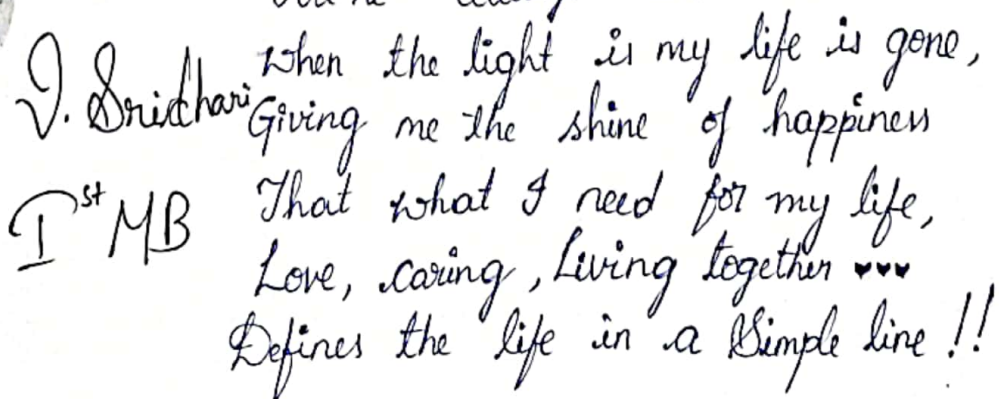 When the light is my life is gone,
J. Sridhari
Giving me the shine of happiness
That what I need for my life,
Ist MB
Love, caring, Living together ♥♥♥
Defines the life in a Simple line !!